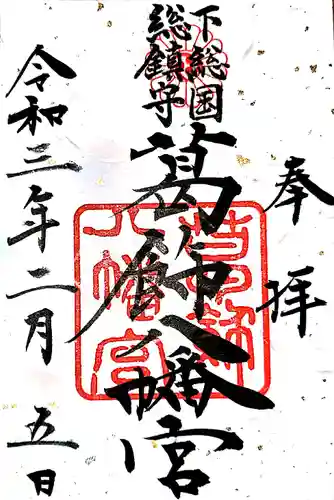 奉拝
下総国
総鎮守
葛飾八幡宮
令和三年二月五日
葛飾
八幡宮